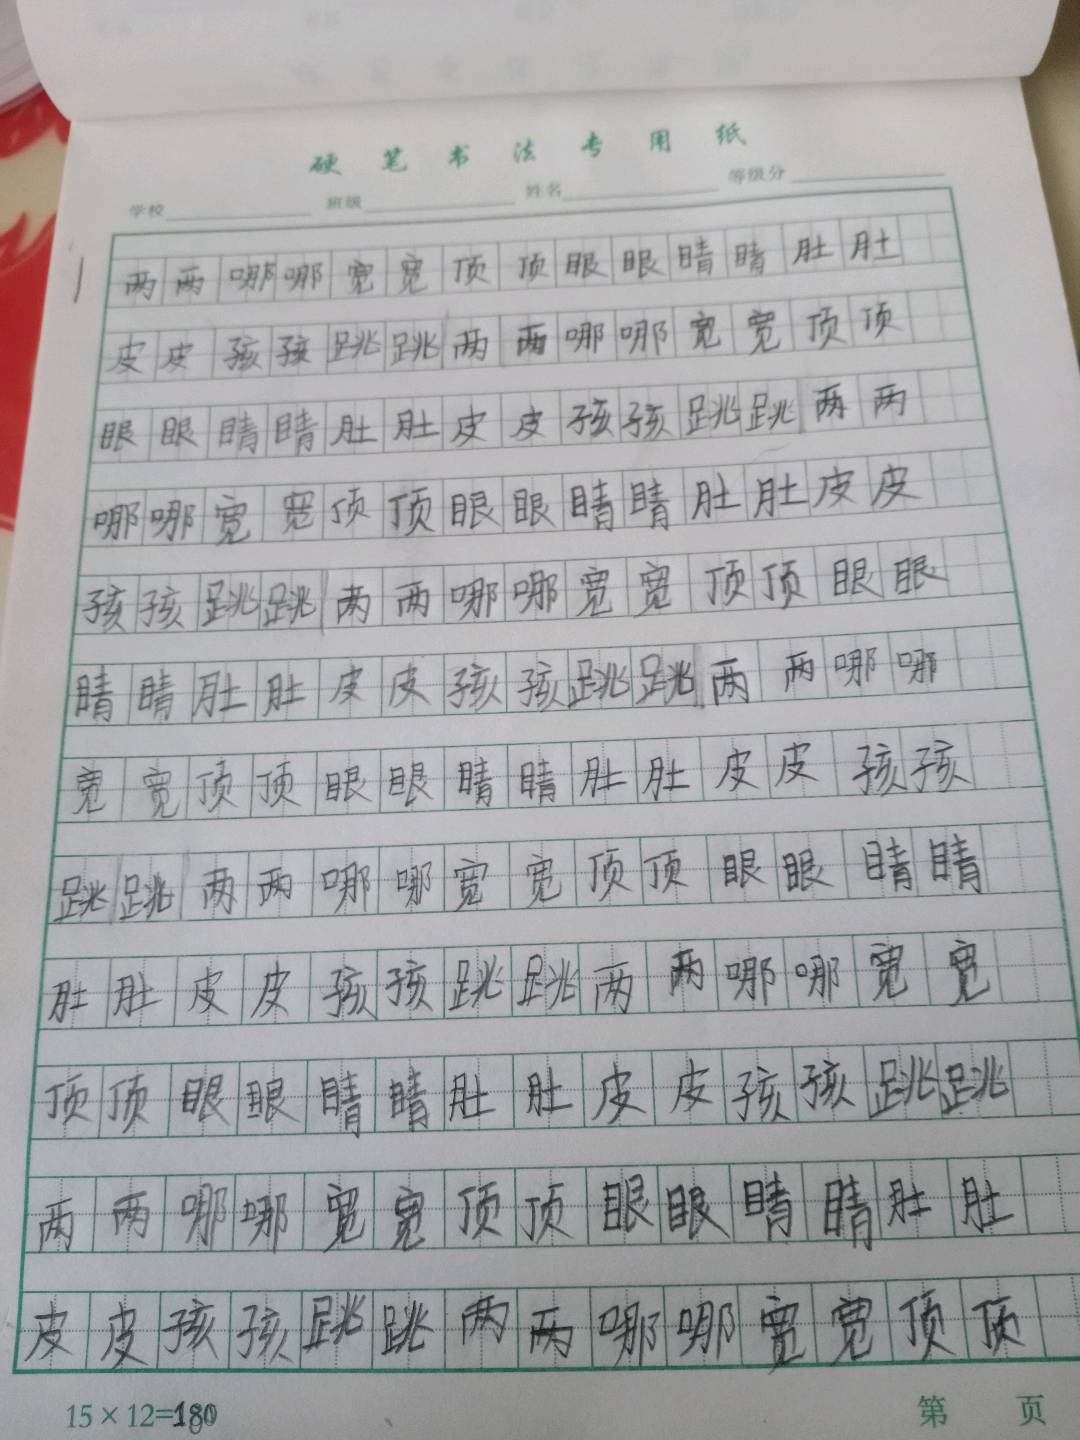 硬笔书法专用纸
学校 班级 姓名 等级分
两两哪哪宽宽顶顶眼眼睛睛肚肚
皮皮孩孩跳跳两两哪哪宽宽顶顶
眼眼睛睛肚肚皮皮孩孩跳跳两两
哪哪宽宽顶顶眼眼睛睛肚肚皮皮
孩孩跳跳两两哪哪宽宽顶顶眼眼
睛睛肚肚皮皮孩孩跳跳两两哪哪
宽宽顶顶眼眼睛睛肚肚皮皮孩孩
跳跳两两哪哪宽宽顶顶眼眼睛睛
肚肚皮皮孩孩跳跳两两哪哪宽宽
顶顶眼眼睛睛肚肚皮皮孩孩跳跳
两两哪哪宽宽顶顶眼眼睛睛肚肚
皮皮孩孩跳跳两两哪哪宽宽顶顶
15×12=180 第 页